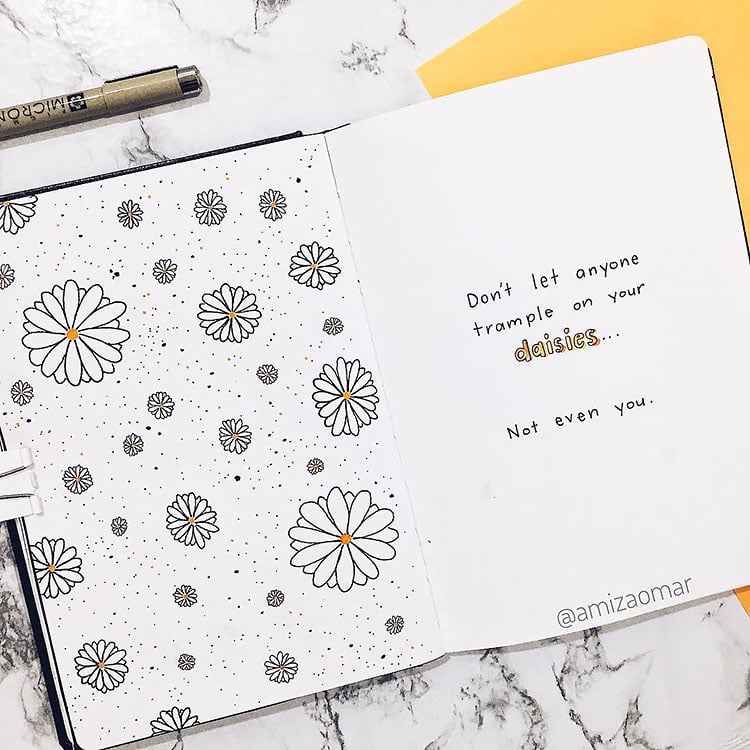 MICRON
Don't let anyone
trample on your
daisies...
Not even you.
@amizaomar